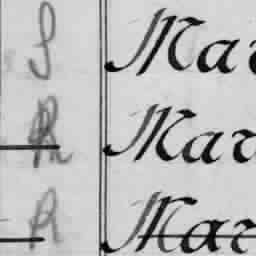 S Mar
R Mar
R Mar